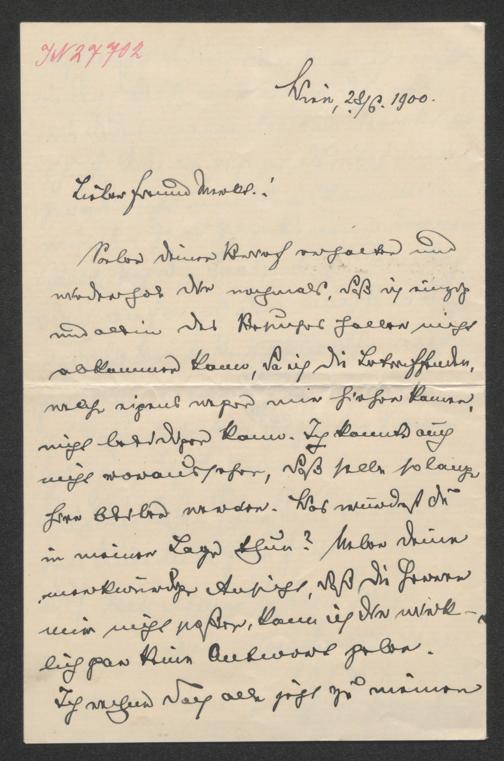 IN 27702
Wien, 28/6. 1900.
Lieber Freund Merkl.!
Soeben deinen Brief erhalten und
wiederhole dir nochmals, daß ich einzig
und allein des Besuches halber nicht
abkommen kann, da ich die Betreffenden,
welche eigens wegen mir hieher kamen,
nicht beleidigen kann. Ich konnte auch
nicht voraussehen, daß selbe so lange
hier bleiben werden. Was würdest du
in meiner Lage thun? Ueber deine
merkwürdige Ansicht, daß die Herren
mir nicht paßen, kann ich dir wirk-
lich gar keine Antwort geben.
Ich rechne doch alle jetzt zu meinen